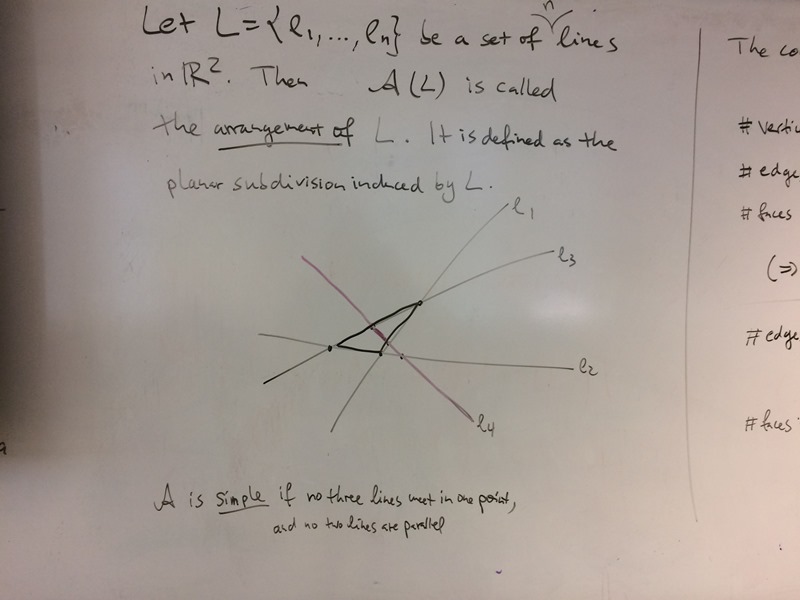 Let L = {ℓ1, ..., ℓn} be a set of n lines
in ℝ². Then A(L) is called
the arrangement of L. It is defined as the
planar subdivision induced by L.
ℓ1
ℓ3
ℓ2
ℓ4
A is simple if no three lines meet in one point,
and no two lines are parallel
The co
# vertic
# edge
# faces
(⇒)
# edge
# faces